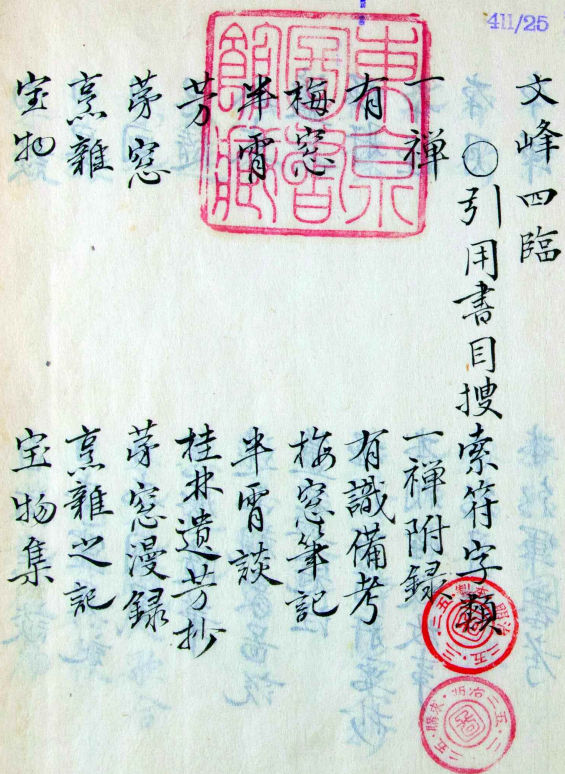 411/25
文峰四臨
○引用書目搜索符字類
一禅 一禅附録
有 有識備考
梅窓 梅窓筆記
半宵 半宵談
芳 桂林遺芳抄
茅窓 茅窓漫録
烹雜 烹雜之記
宝物 宝物集
東京圖書館藏